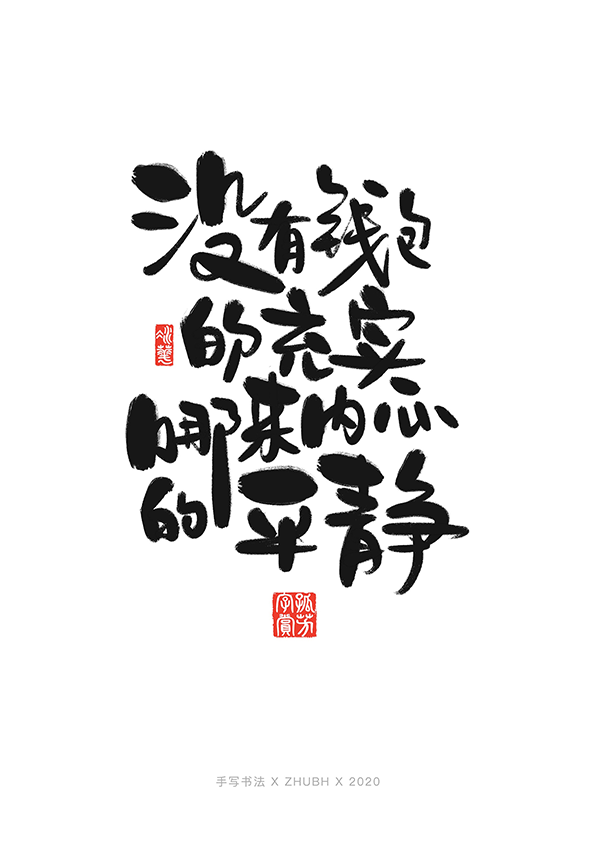 没有钱包
的充实
哪来内心
的平静
孤芳
字赏
手写书法 X ZHUBH X 2020